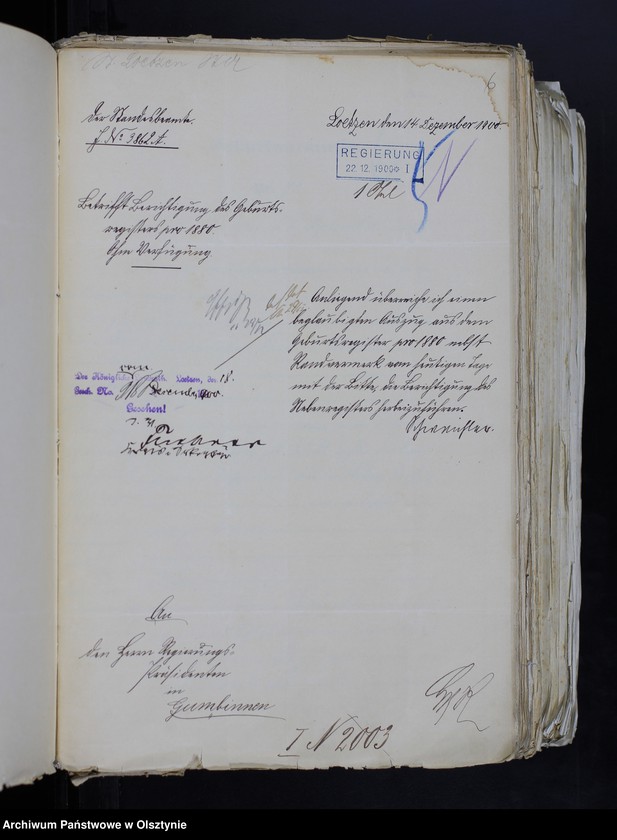 6
Der Standesbeamte.
J. No 3862 A.
Loetzen den 14 Dezember 1900.
REGIERUNG
22.12.1900 I
Betrifft Berichtigung des Geburts-
registers pro 1880
Ohne Verfügung
Anliegend überreiche ich einen
beglaubigten Auszug aus dem
Geburtsregister pro 1880 nebst
Randvermerk vom heutigen Tage
mit der Bitte, die Berichtigung des
Nebenregisters herbeizuführen.
Der Königliche Loetzen, den 18.
No. Dezember 1900.
Gesehen!
An
den Herrn Regierungs-
Präsidenten
in
Gumbinnen
I N 2003
Archiwum Państwowe w Olsztynie